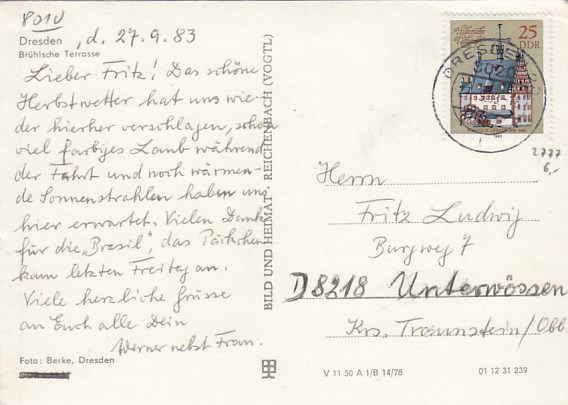 8010
Dresden , d. 27.9.83
Brühlsche Terrasse
Lieber Fritz! Das schöne
Herbstwetter hat uns wie-
der hierher verschlagen, schon
viel farbiges Laub während
der Fahrt und noch wärmen-
de Sonnenstrahlen haben uns
hier erwartet. Vielen Dank
für die „Brasil", das Päckchen
kam letzten Freitag an.
Viele herzliche Grüsse
an Euch alle Dein
Werner nebst Frau.
Foto: Berke, Dresden
BILD UND HEIMAT REICHENBACH (VOGTL)
25
DDR
DRESDEN
8020
2777
6,-
Herrn
Fritz Ludwig
Burgweg 7
D 8218 Unterwössen
Krs. Traunstein/Obb
V 11 50 A 1/B 14/78
01 12 31 239